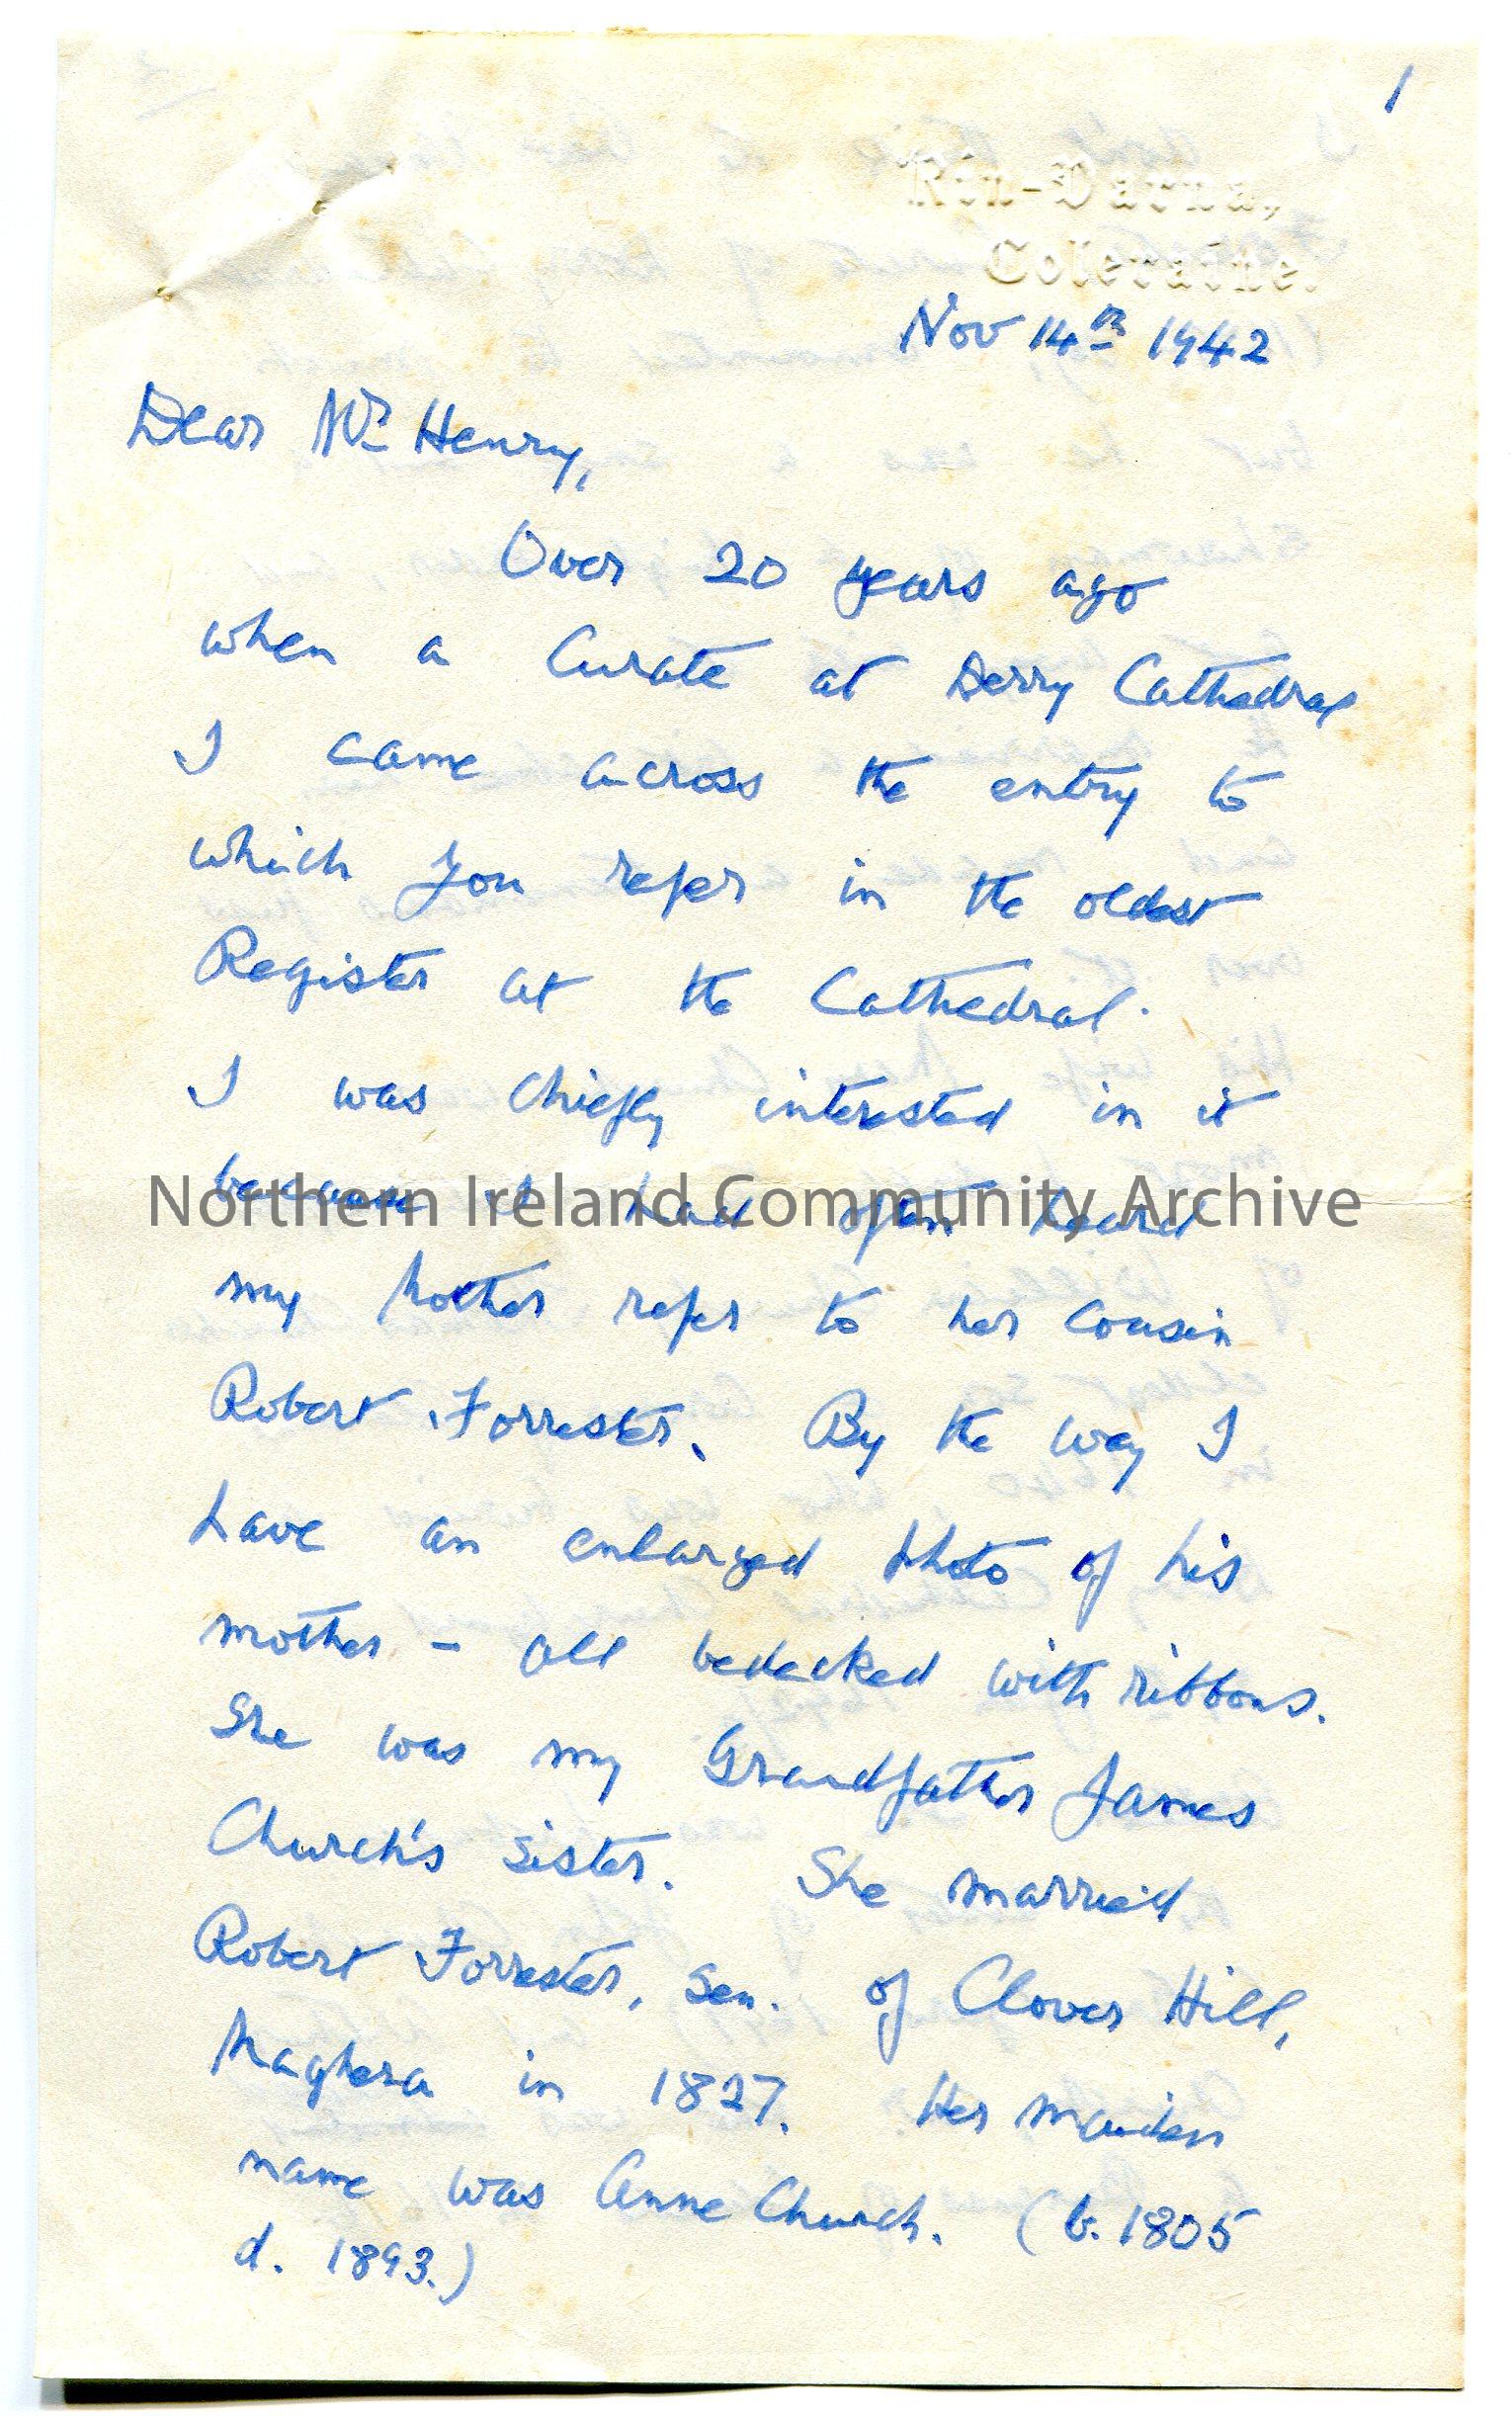 1
Rin-Darna,
Coleraine.
Nov 14th 1942
Dear Mr Henry,
Over 20 years ago
when a Curate at Derry Cathedral
I came across the entry to
which you refer in the oldest
Register at the Cathedral.
I was chiefly interested in it
because I had often heard
Northern Ireland Community Archive
my Mother refer to her cousin
Robert Forrester. By the way I
have an enlarged photo of his
mother - all bedecked with ribbons.
She was my Grandfather James
Church's sister. She married
Robert Forrester, Sen. of Clover Hill,
Maghera in 1827. Her maiden
name was Anne Church. (b. 1805
d. 1893.)